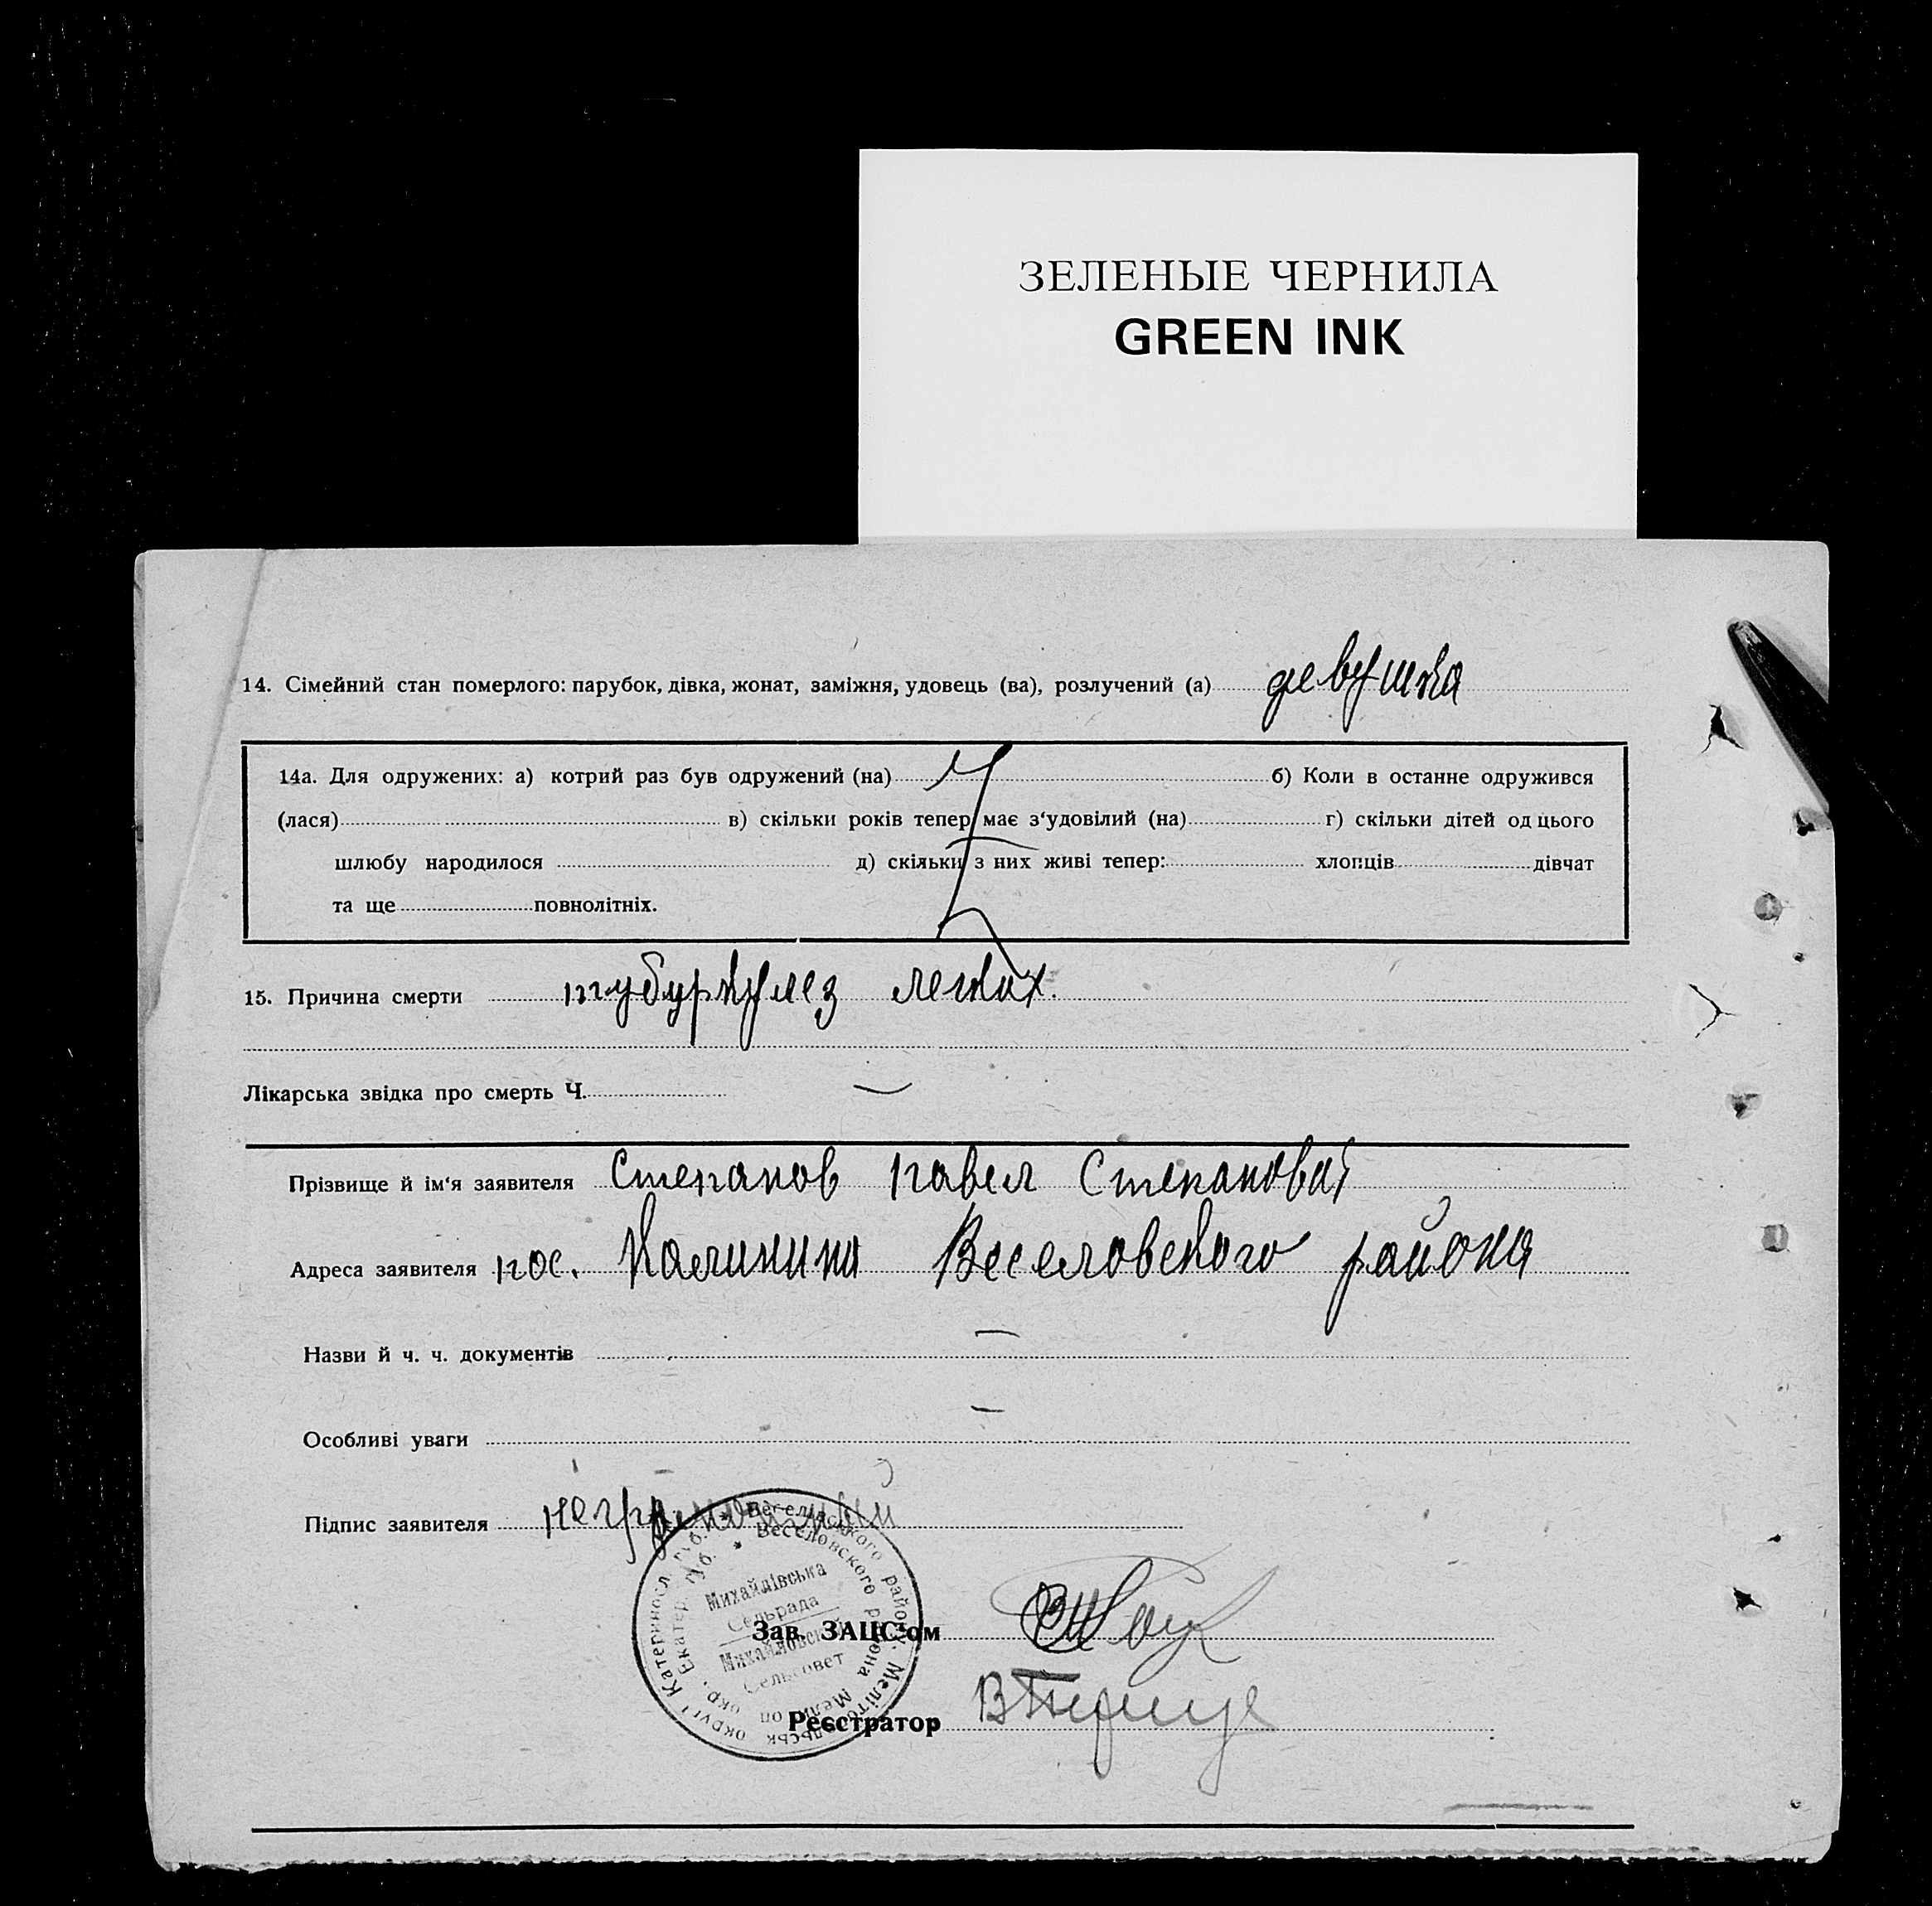 ЗЕЛЕНЫЕ ЧЕРНИЛА
GREEN INK
14. Сімейний стан померлого: парубок, дівка, жонат, заміжня, удовець (ва), розлучений (а) девушка
14а. Для одружених: а) котрий раз був одружений (на) б) Коли в останне одружився
(лася) в) скільки років тепер має з'удовілий (на) г) скільки дітей од цього
шлюбу народилося д) скільки з них живі тепер: хлопців дівчат
та ще повнолітніх.
15. Причина смерти тубуркулез легких.
Лікарська звідка про смерть Ч. —
Прізвище й ім'я заявителя Степанов Павел Степановач
Адреса заявителя пос. Калинина Веселовского района
Назви й ч. ч. документів —
Особливі уваги —
Підпис заявителя неграмотный
Веселівського району Мелітопольськ округи Катериносл губ.
Веселовского района Мелитоп окр. Екатер. губ.
Михайлівська
Сельрада
Михайловский
Сельсовет
Зав. ЗАЦС'ом
Реєстратор